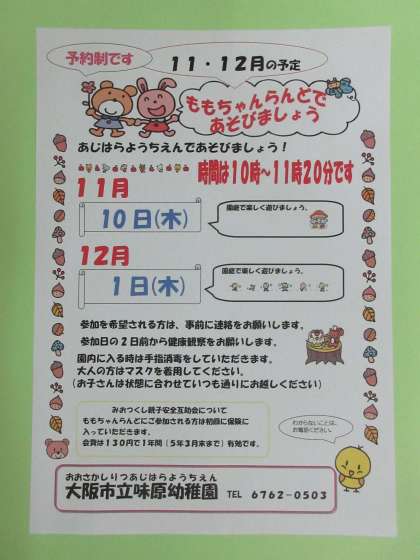 予約制です
11・12月の予定
ももちゃんらんどで
あそびましょう
あじはらようちえんであそびましょう！
時間は10時～11時20分です
11月
10日(木)
園庭で楽しく遊びましょう。
12月
1日(木)
園庭で楽しく遊びましょう。
参加を希望される方は、事前に連絡をお願いします。
参加日の2日前から健康観察をお願いします。
園内に入る時は手指消毒をしていただきます。
大人の方はマスクを着用してください。
(お子さんは状態に合わせていつも通りにお越しください)
みおつくし親子安全互助会について
ももちゃんらんどにご参加される方は初回に保険に
入っていただきます。
会費は130円で1年間（5年3月末まで）有効です。
わからないことは、
お電話ください。
おおさかしりつあじはらようちえん
大阪市立味原幼稚園 TEL 6762-0503